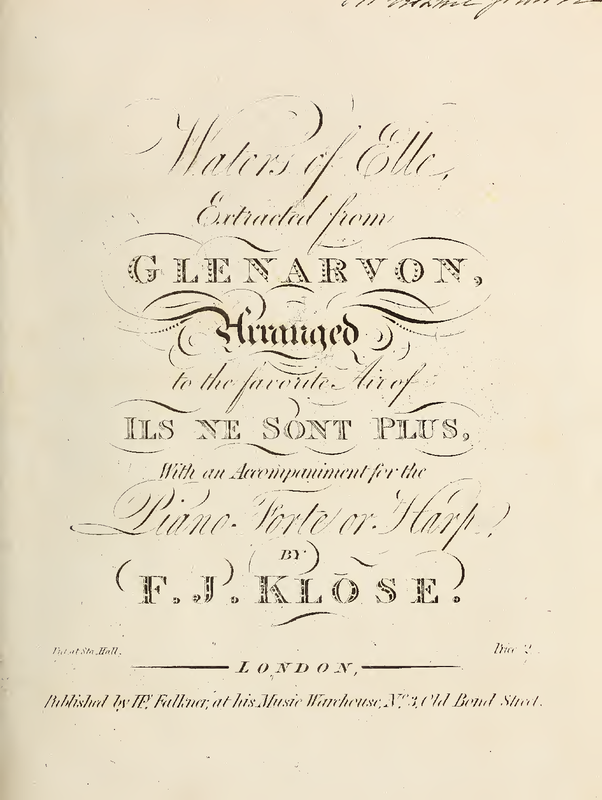 Waters of Elle,
Extracted from
GLENARVON,
Arranged
to the favorite Air of
ILS NE SONT PLUS,
With an Accompaniment for the
Piano-Forte or Harp,
BY
F. J. KLŌSE.
Ent. at Sta. Hall.
Price
LONDON,
Published by W. Falkner, at his Music Warehouse, No. 3, Old Bond Street.